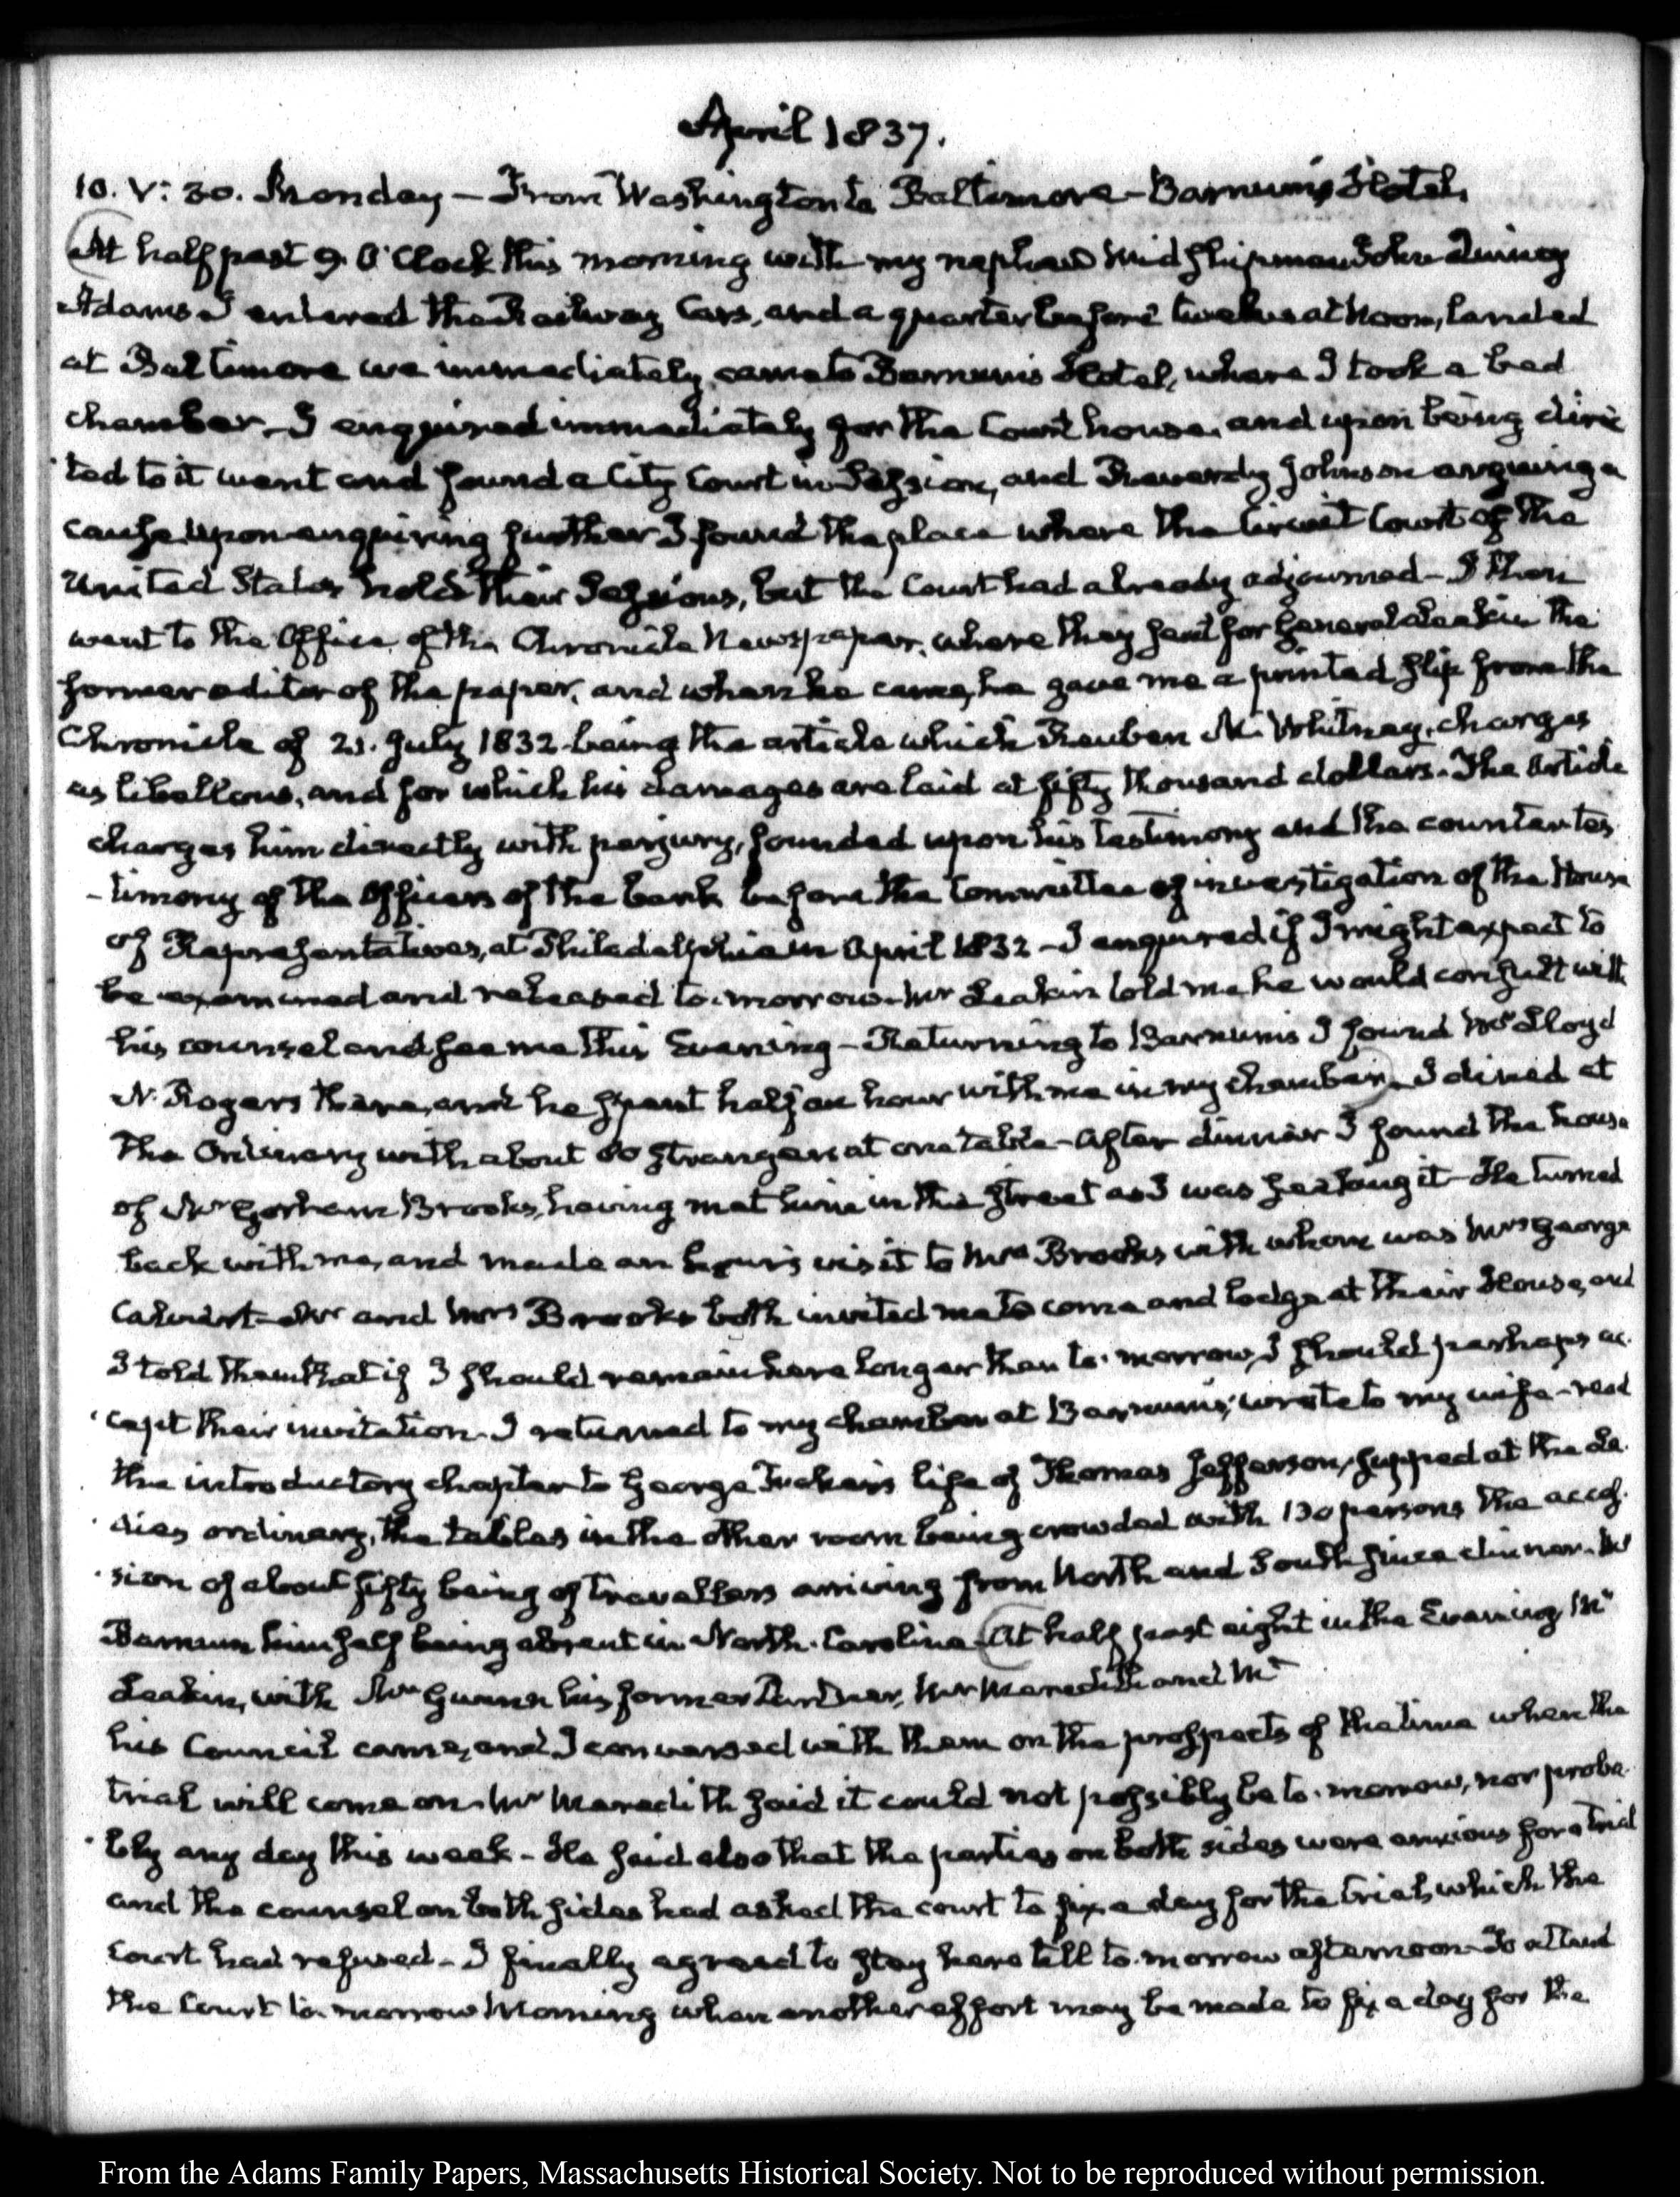 April 1837.
10. V: 30. Monday — From Washington to Baltimore — Barnum's Hotel.
At half past 9. O'Clock this morning with my nephew Midshipman John Quincy
Adams I entered the Railway Cars, and a quarter before twelve at Noon, landed
at Baltimore we immediately came to Barnum's Hotel, where I took a bed
chamber — I enquired immediately for the Court house, and upon being direc
ted to it went and found a City Court in Session, and Reverdy Johnson arguing a
cause. Upon enquiring further I found the place where the Circuit Court of the
United States holds their Sessions, but the Court had already adjourned — I then
went to the Office of the Chronicle Newspaper, where they sent for General Leakin the
former editor of the paper, and when he came, he gave me a printed slip from the
Chronicle of 21. July 1832 being the article which Reuben M. Whitney, charges
as libellous, and for which his damages are laid at fifty thousand dollars. The Article
charges him directly with perjury, founded upon his testimony and the countertes
-timony of the Officers of the bank before the Committee of investigation of the House
of Representatives, at Philadelphia in April 1832 — I enquired if I might expect to
be examined and released to-morrow. Mr Leakin told me he would consult with
his counsel and see me this Evening — Returning to Barnum's I found Mr Lloyd
N. Rogers there, and he spent half an hour with me in my chamber. I dined at
the Ordinary with about 80 strangers at one table — After dinner I found the house
of Mr Gorham Brooks, having met him in the street as I was seeking it — He turned
back with me, and made an hour's visit to Mrs Brooks with whom was Mrs George
Calvert — Mr and Mrs Brooks both invited me to come and lodge at their House, and
I told them that if I should remain here longer than to-morrow, I should perhaps ac
cept their invitation. I returned to my chamber at Barnum's, wrote to my wife — read
the introductory chapter to George Tucker's life of Thomas Jefferson, supped at the La
dies ordinary, the tables in the other room being crowded with 130 persons the acces
sion of about fifty being of travellers arriving from North and South since dinner. Mr
Barnum himself being absent in North-Carolina. At half past eight in the Evening, Mr
Leakin, with Mr Gwinn his former Partner, Mr Meredith and Mr
his Council came, and I conversed with them on the prospects of the time when the
trial will come on. Mr Meredith said it could not possibly be to-morrow, nor proba
bly any day this week — He said also that the parties on both sides were anxious for a trial
and the counsel on both sides had asked the court to fix a day for the trial, which the
Court had refused — I finally agreed to stay here till to-morrow afternoon — To attend
the Court to-morrow Morning when another effort may be made to fix a day for the
From the Adams Family Papers, Massachusetts Historical Society. Not to be reproduced without permission.